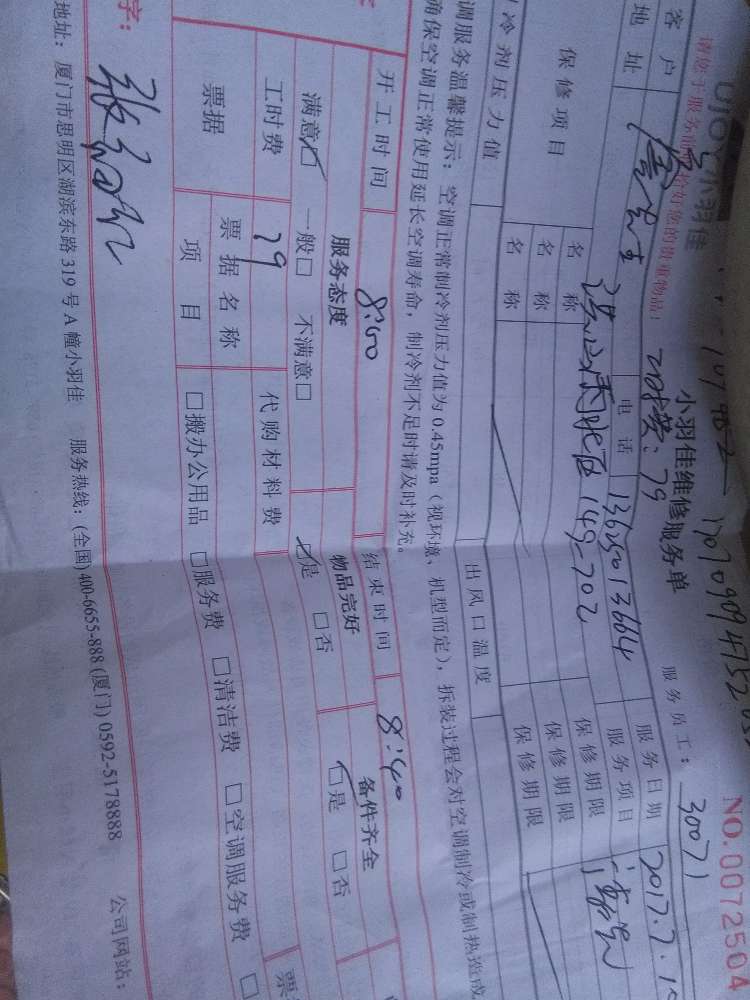 小羽佳
NO.0072504
请您于服务前
您的贵重物品!
小羽佳维修服务单
服务员工: 30071
客户
电话 13625013664
服务日期 2017.7.1
地址
149-702
服务项目
保修项目
名称
保修期限
名称
保修期限
名称
保修期限
冷剂压力值
出风口温度
调服务温馨提示: 空调正常制冷剂压力值为0.45mpa(视环境、机型而定), 拆装过程会对空调制冷或制热造成
确保空调正常使用延长空调寿命, 制冷剂不足时请及时补充。
开工时间
结束时间 8:40
服务态度
物品完好
备件齐全
满意☑ 一般□ 不满意□
☑是 □否
☑是 □否
工时费 79
代购材料费
票据
票据名称
项目
□搬办公用品 □服务费 □清洁费 □空调服务费 □
字:
地址: 厦门市思明区湖滨东路319号A幢小羽佳 服务热线: (全国)400-6655-888 (厦门)0592-5178888 公司网站: